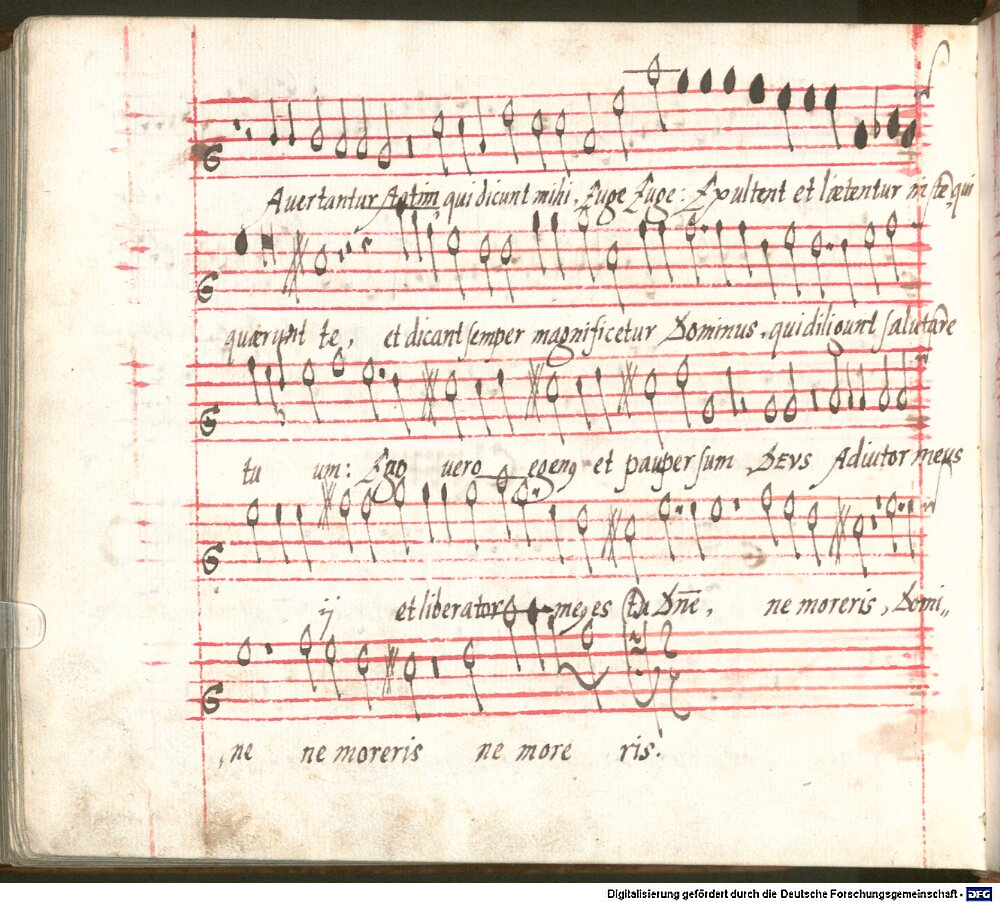 Auertantur statim qui dicunt mihi, Euge Euge: Exultent et lætentur in te qui
quærunt te, et dicant semper magnificetur Dominus, qui diligunt salutare
tu um: Ego uero egenꝯ et pauper sum, DEVS Adiutor meus
ij et liberator meꝯ es tu Dn̄e, ne moreris, Domi„
,ne ne moreris ne more ris.
Digitalisierung gefördert durch die Deutsche Forschungsgemeinschaft - DFG